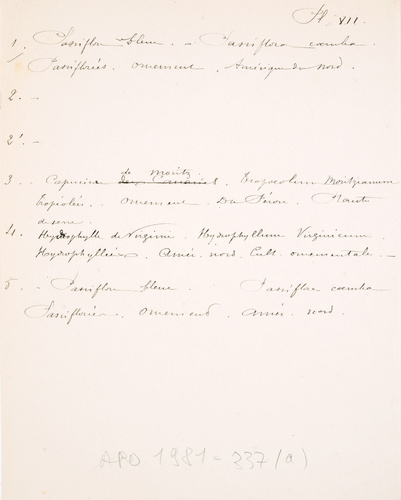 Pl. VII.
1. Passiflore bleue. - Passiflora cærulea.
Passiflorées. ornement. Amérique du nord.
2. -
2'. -
de Moritz
3. . Capucine des Canaries. Tropæolum Moritzianum
Tropéolées. ornement. Du Pérou. Plante
de serre.
4. Hydrophylle de Virginie. Hydrophyllum Virginicum.
Hydrophyllées. Amér. nord. Cult. ornementale. -
5. - Passiflore bleue. Passiflora cærulea
Passiflorées. ornement. Amér. nord.
ARO 1981-337(a)